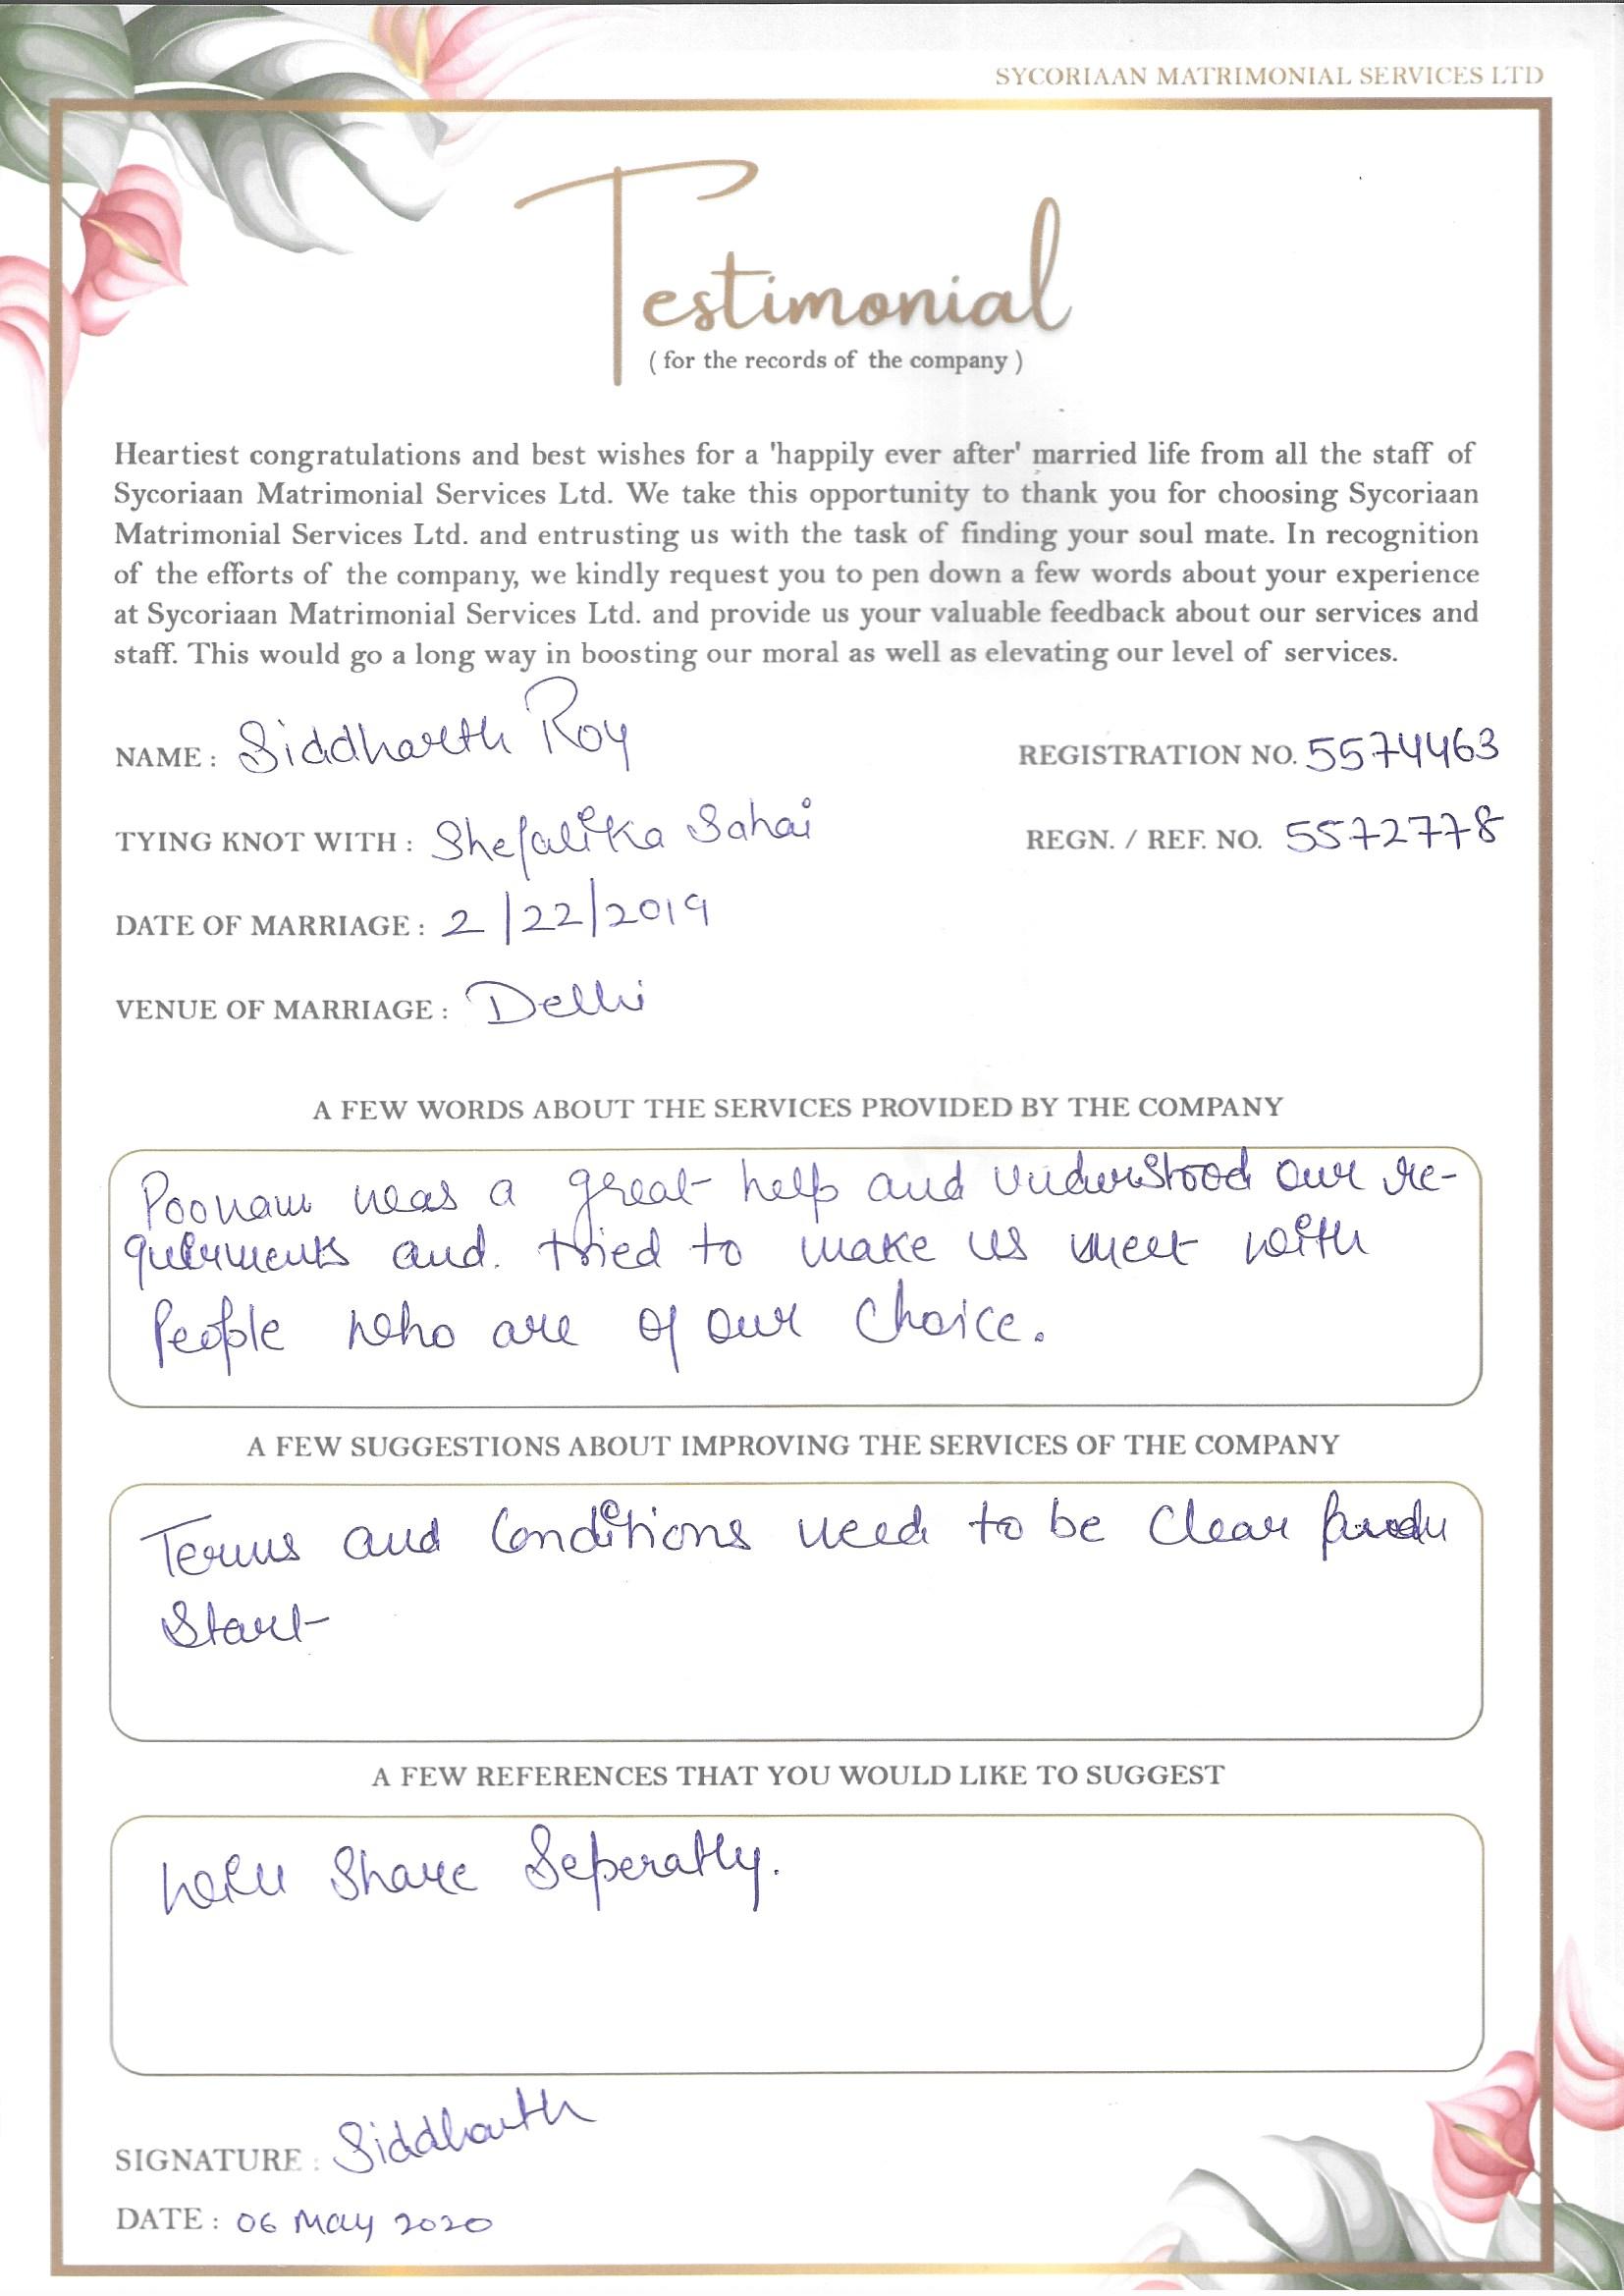 SYCORIAAN MATRIMONIAL SERVICES LTD
Testimonial
( for the records of the company )
Heartiest congratulations and best wishes for a 'happily ever after' married life from all the staff of
Sycoriaan Matrimonial Services Ltd. We take this opportunity to thank you for choosing Sycoriaan
Matrimonial Services Ltd. and entrusting us with the task of finding your soul mate. In recognition
of the efforts of the company, we kindly request you to pen down a few words about your experience
at Sycoriaan Matrimonial Services Ltd. and provide us your valuable feedback about our services and
staff. This would go a long way in boosting our moral as well as elevating our level of services.
NAME : Siddharth Roy
REGISTRATION NO. 5574463
TYING KNOT WITH : Shefalika Sahai
REGN. / REF. NO. 5572778
DATE OF MARRIAGE : 2/22/2019
VENUE OF MARRIAGE : Delhi
A FEW WORDS ABOUT THE SERVICES PROVIDED BY THE COMPANY
Poonam was a great help and understood our re-
quirments and. tried to make us meet with
People who are of our Choice.
A FEW SUGGESTIONS ABOUT IMPROVING THE SERVICES OF THE COMPANY
Terms and Conditions need to be Clear
Start
A FEW REFERENCES THAT YOU WOULD LIKE TO SUGGEST
Will Share Seperatly.
SIGNATURE : Siddharth
DATE : 06 May 2020